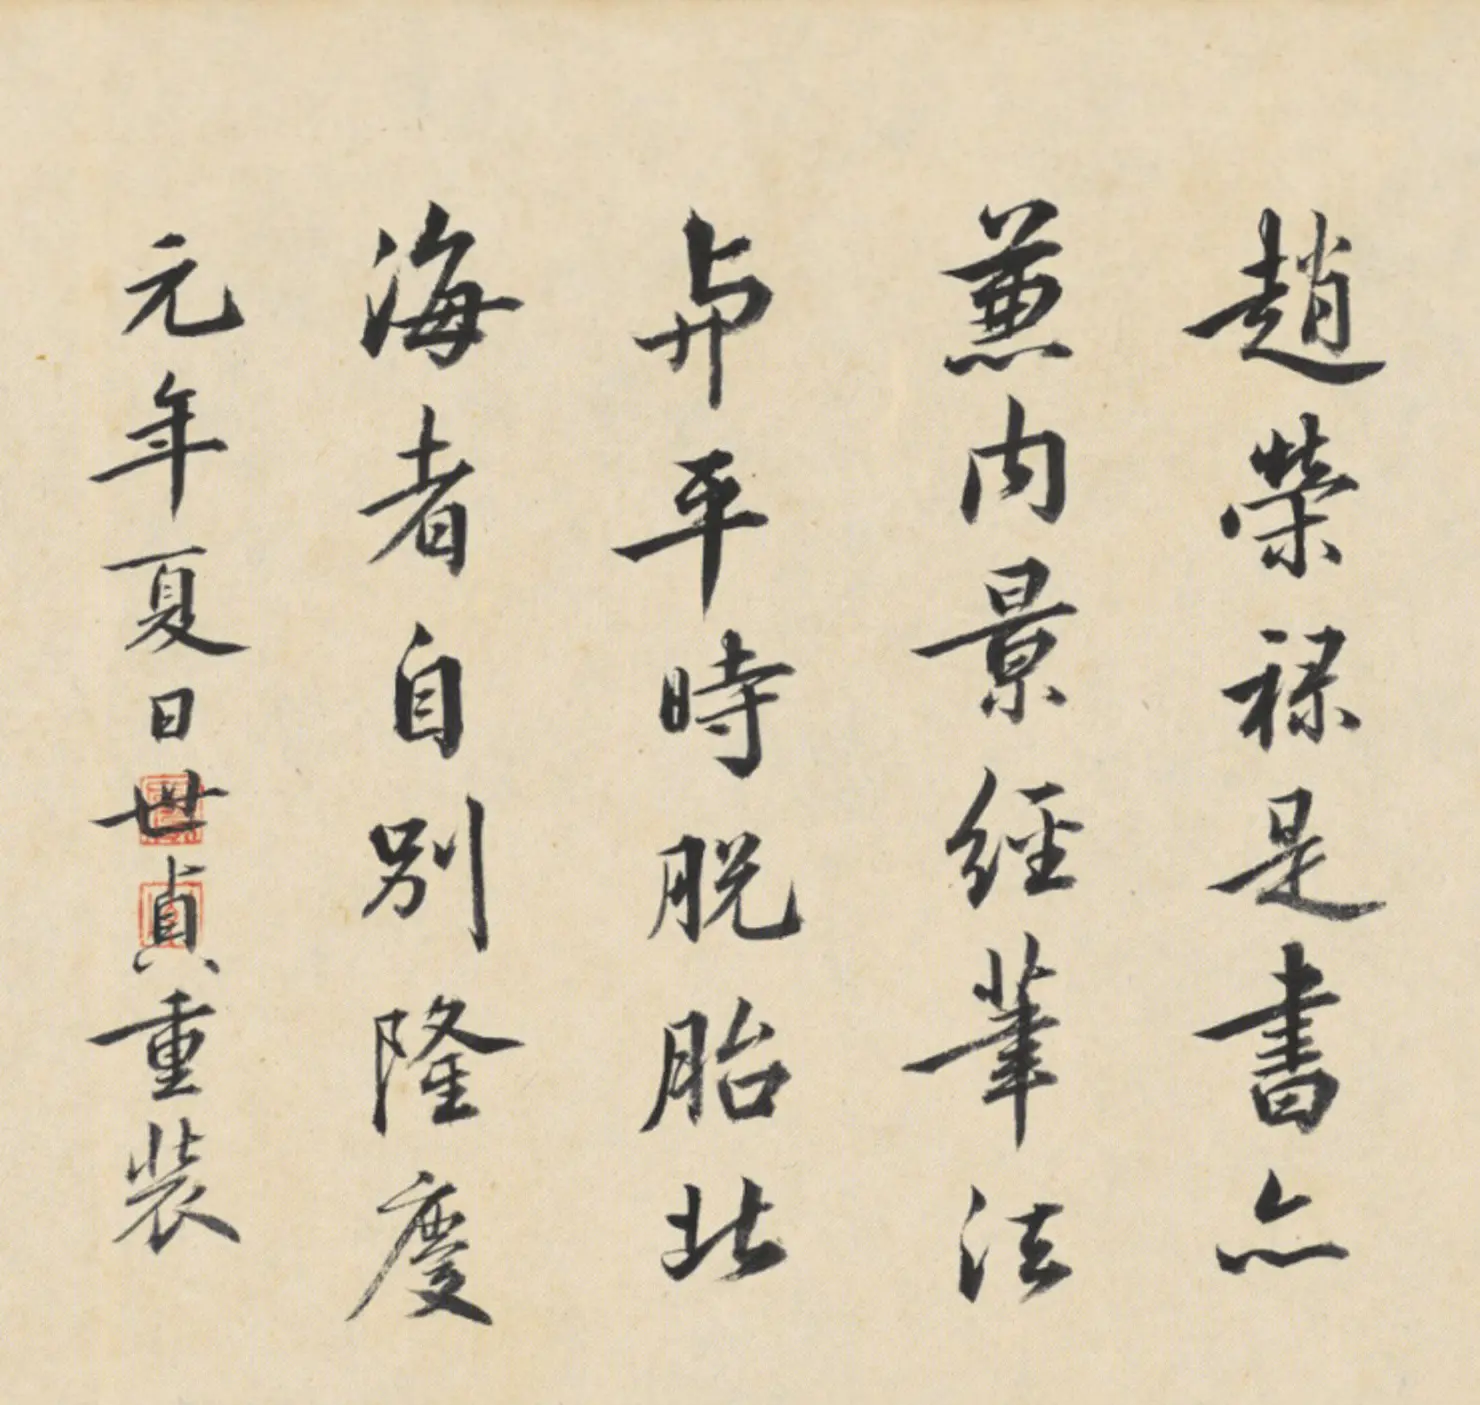 趙榮祿是書亦
兼內景經筆法
與平時脫胎北
海者自別隆慶
元年夏日世貞重裝